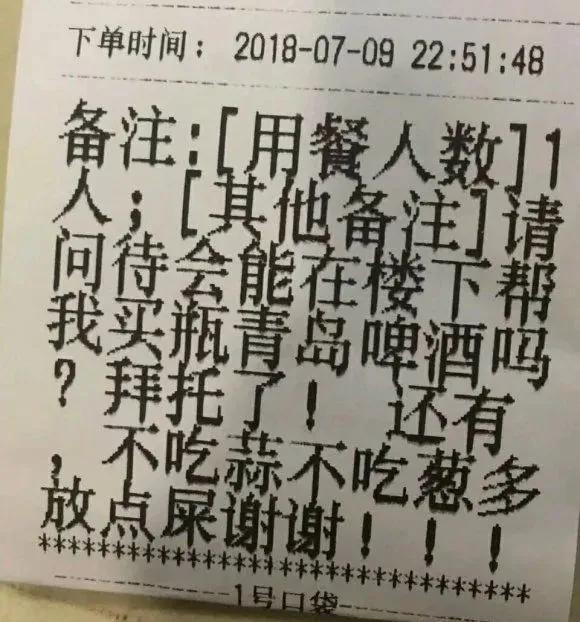 下单时间： 2018-07-09 22:51:48
备注:[用餐人数]1
人；[其他备注]请
问待会能在楼下帮
我买瓶青岛啤酒吗
？拜托了！ 还有
，不吃蒜不吃葱多
放点屎谢谢！！！
*********************************
1号口袋